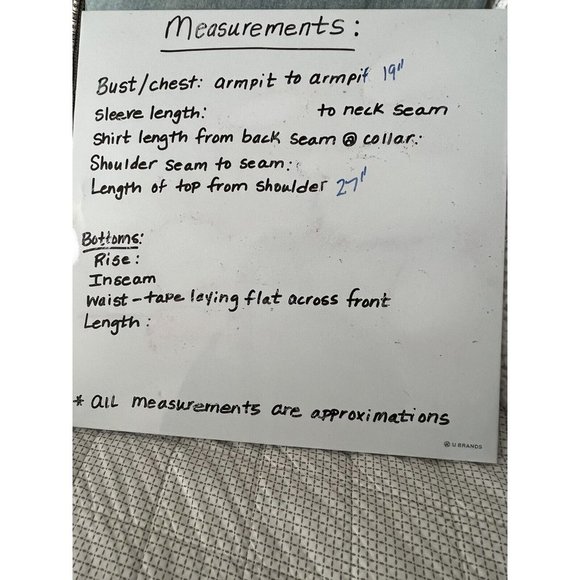 Measurements:
Bust/chest: armpit to armpit 19"
Sleeve length: to neck seam
Shirt length from back seam @ collar:
Shoulder seam to seam:
Length of top from shoulder 27"
Bottoms:
Rise:
Inseam
Waist - tape laying flat across front
Length:
* all measurements are approximations
U BRANDS